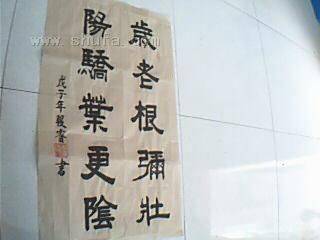 歲老根彌壯
陽驕葉更陰
戊子年 書
www.shufa.com